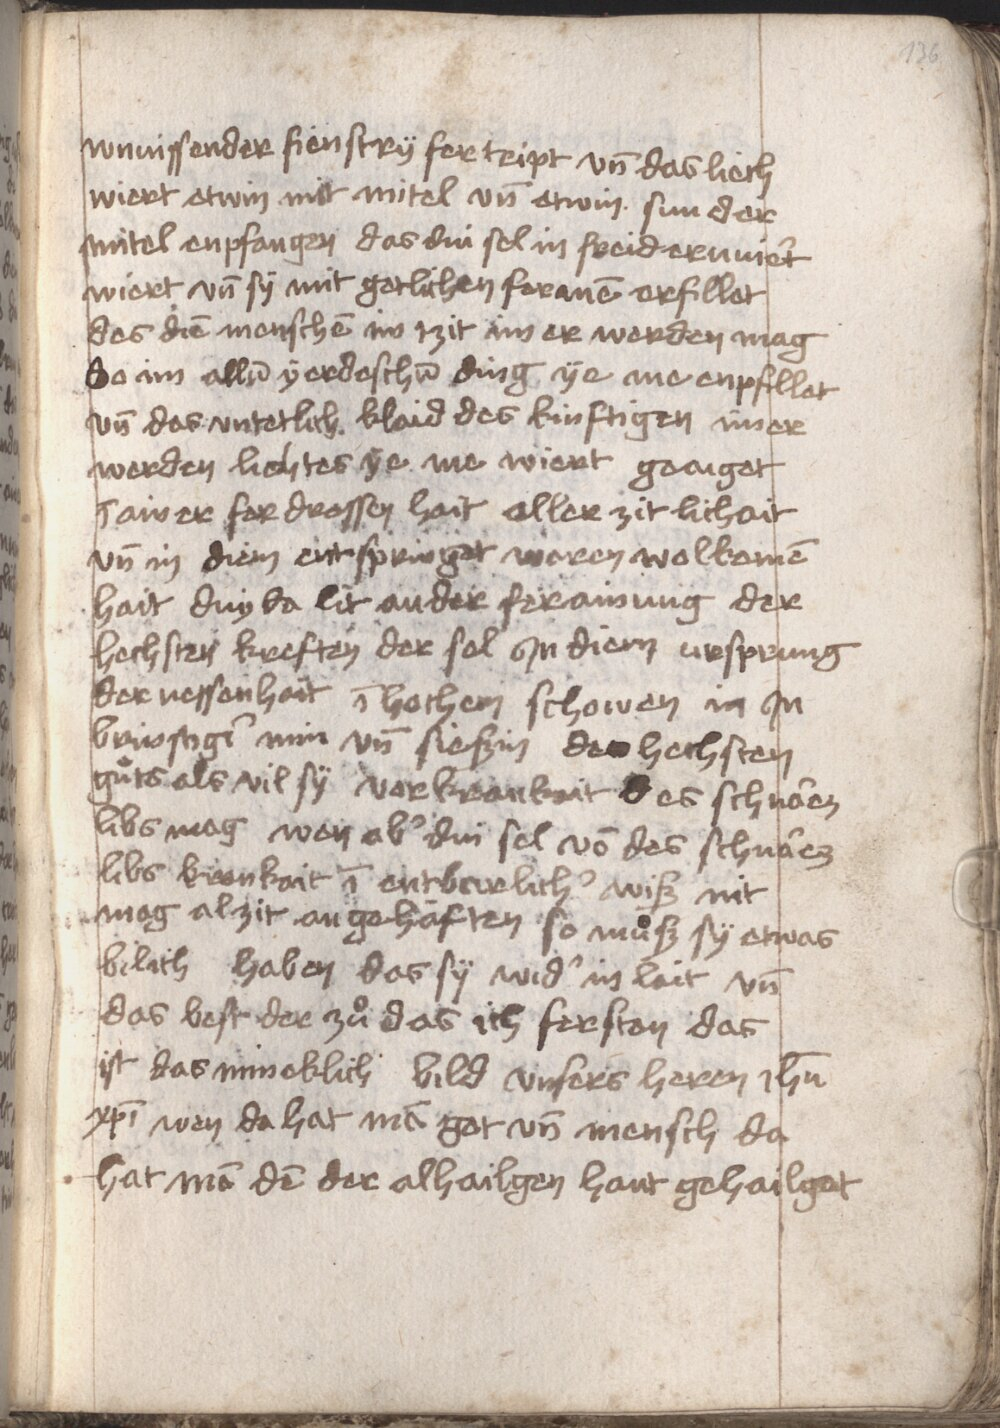 136
wnuissender fienstry fertript vn̄ das liech
wiert etwin mit mitel vn̄ etwin sunder
mitel enpfangen das dui sel in freid ernuiert
wiert vn̄ sÿ mit getlichen feranē erfillet
des diē menschē im zit imer werden mag
So im allū ÿerdeschū ding ÿe me enpfillet
vn̄ das vntetlich klaid des kinftigen imer
werden liechtes ÿe me wiert geaiget
ī ainer ferdrossenhait aller zitlichait
vn̄ in diem entspringet waren wolkomē
hait duy da lit an der ferainung der
hechsten kreften der sel In diem ursprung
der uessenhait ī hochem schowen in In
brinstigr̄ min vn̄ siessin des hechsten
gůts als vil sÿ vor krankait des schwāen
libs mag wen ab' dui sel vō des schwāen
libs krankait ī entberelich' wiß nit
mag alzit angehaften so můß sÿ etwas
bilich haben das sÿ wid' in lait vn̄
das best der zů das ich ferstan das
ist das mineklich bild vnsers heren ihū
xpī wen da hat mā got vn̄ mensch da
hat mā dē der alhailgen hant gehailget